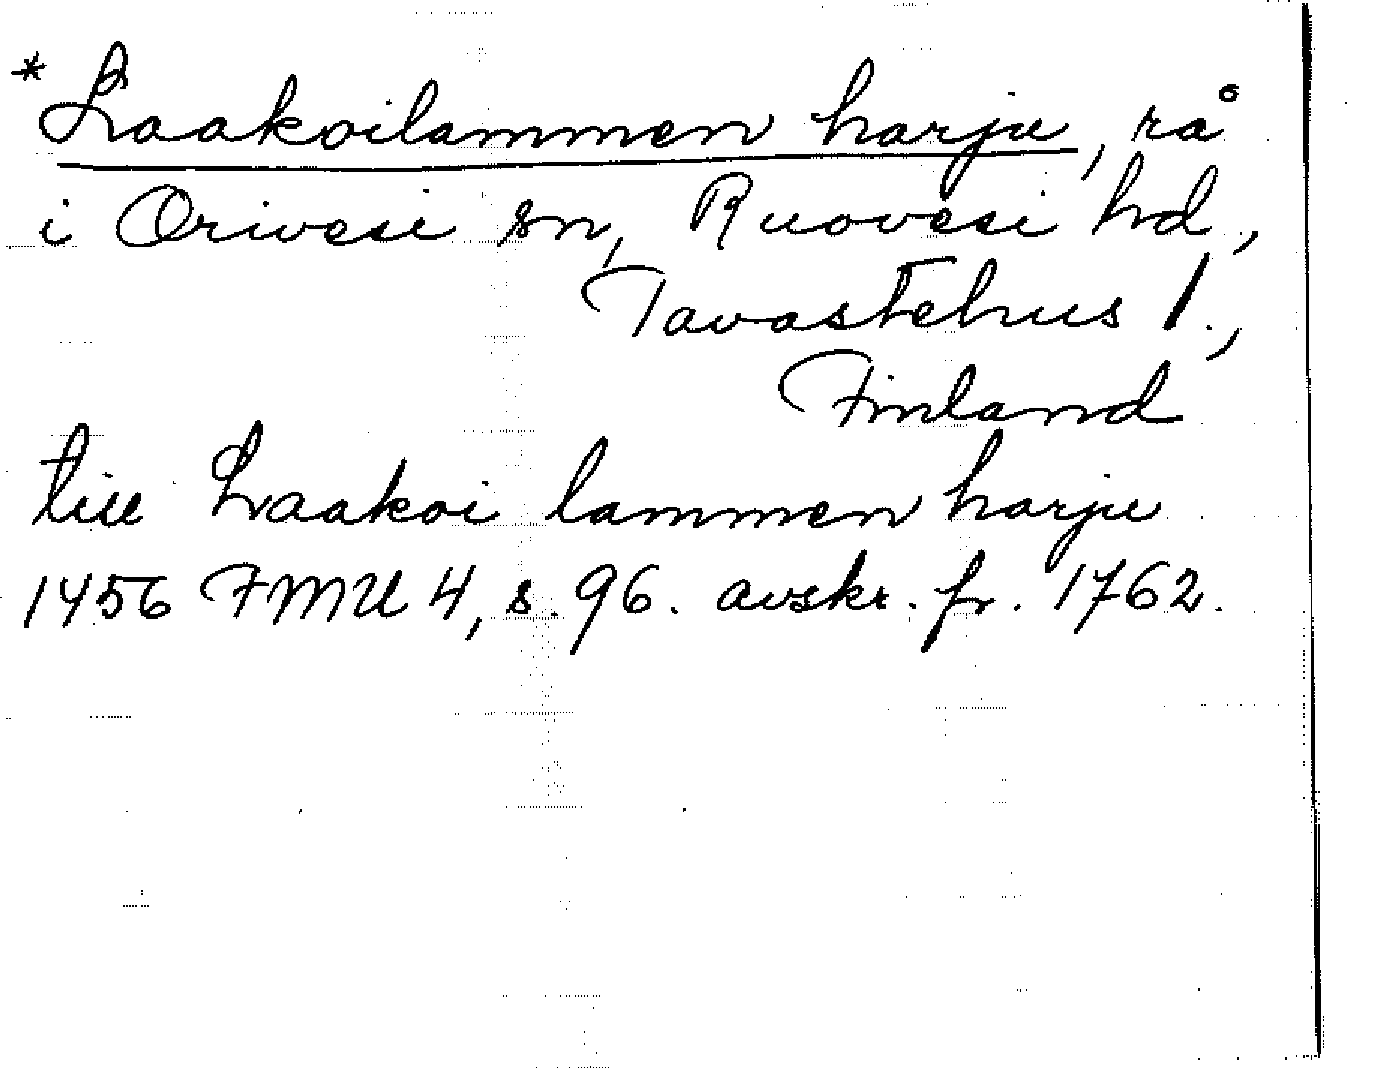 *Laakoilammen harju, rå
i Orivesi sn, Ruovesi hd,
Tavastehus l.,
Finland
till Laakoi lammen harju
1456 FMU 4, s. 96. avskr. fr. 1762.